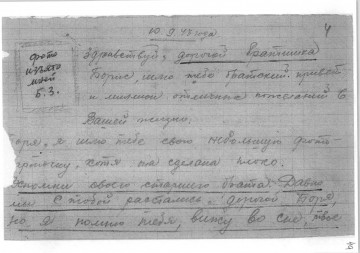 10.9.43 года
4
фото
изъято
мной
Б.З.
Здравствуй, дорогой братишка
Борис, шлю тебе братский привет
и миллион отличных пожеланий в
Вашей жизни.
Боря, я шлю тебе свою небольшую фото-
карточку, хотя она сделана плохо.
Вспомни своего старшего брата. Давно
мы с тобой расстались, дорогой Боря,
но я помню тебя, вижу во сне, твое